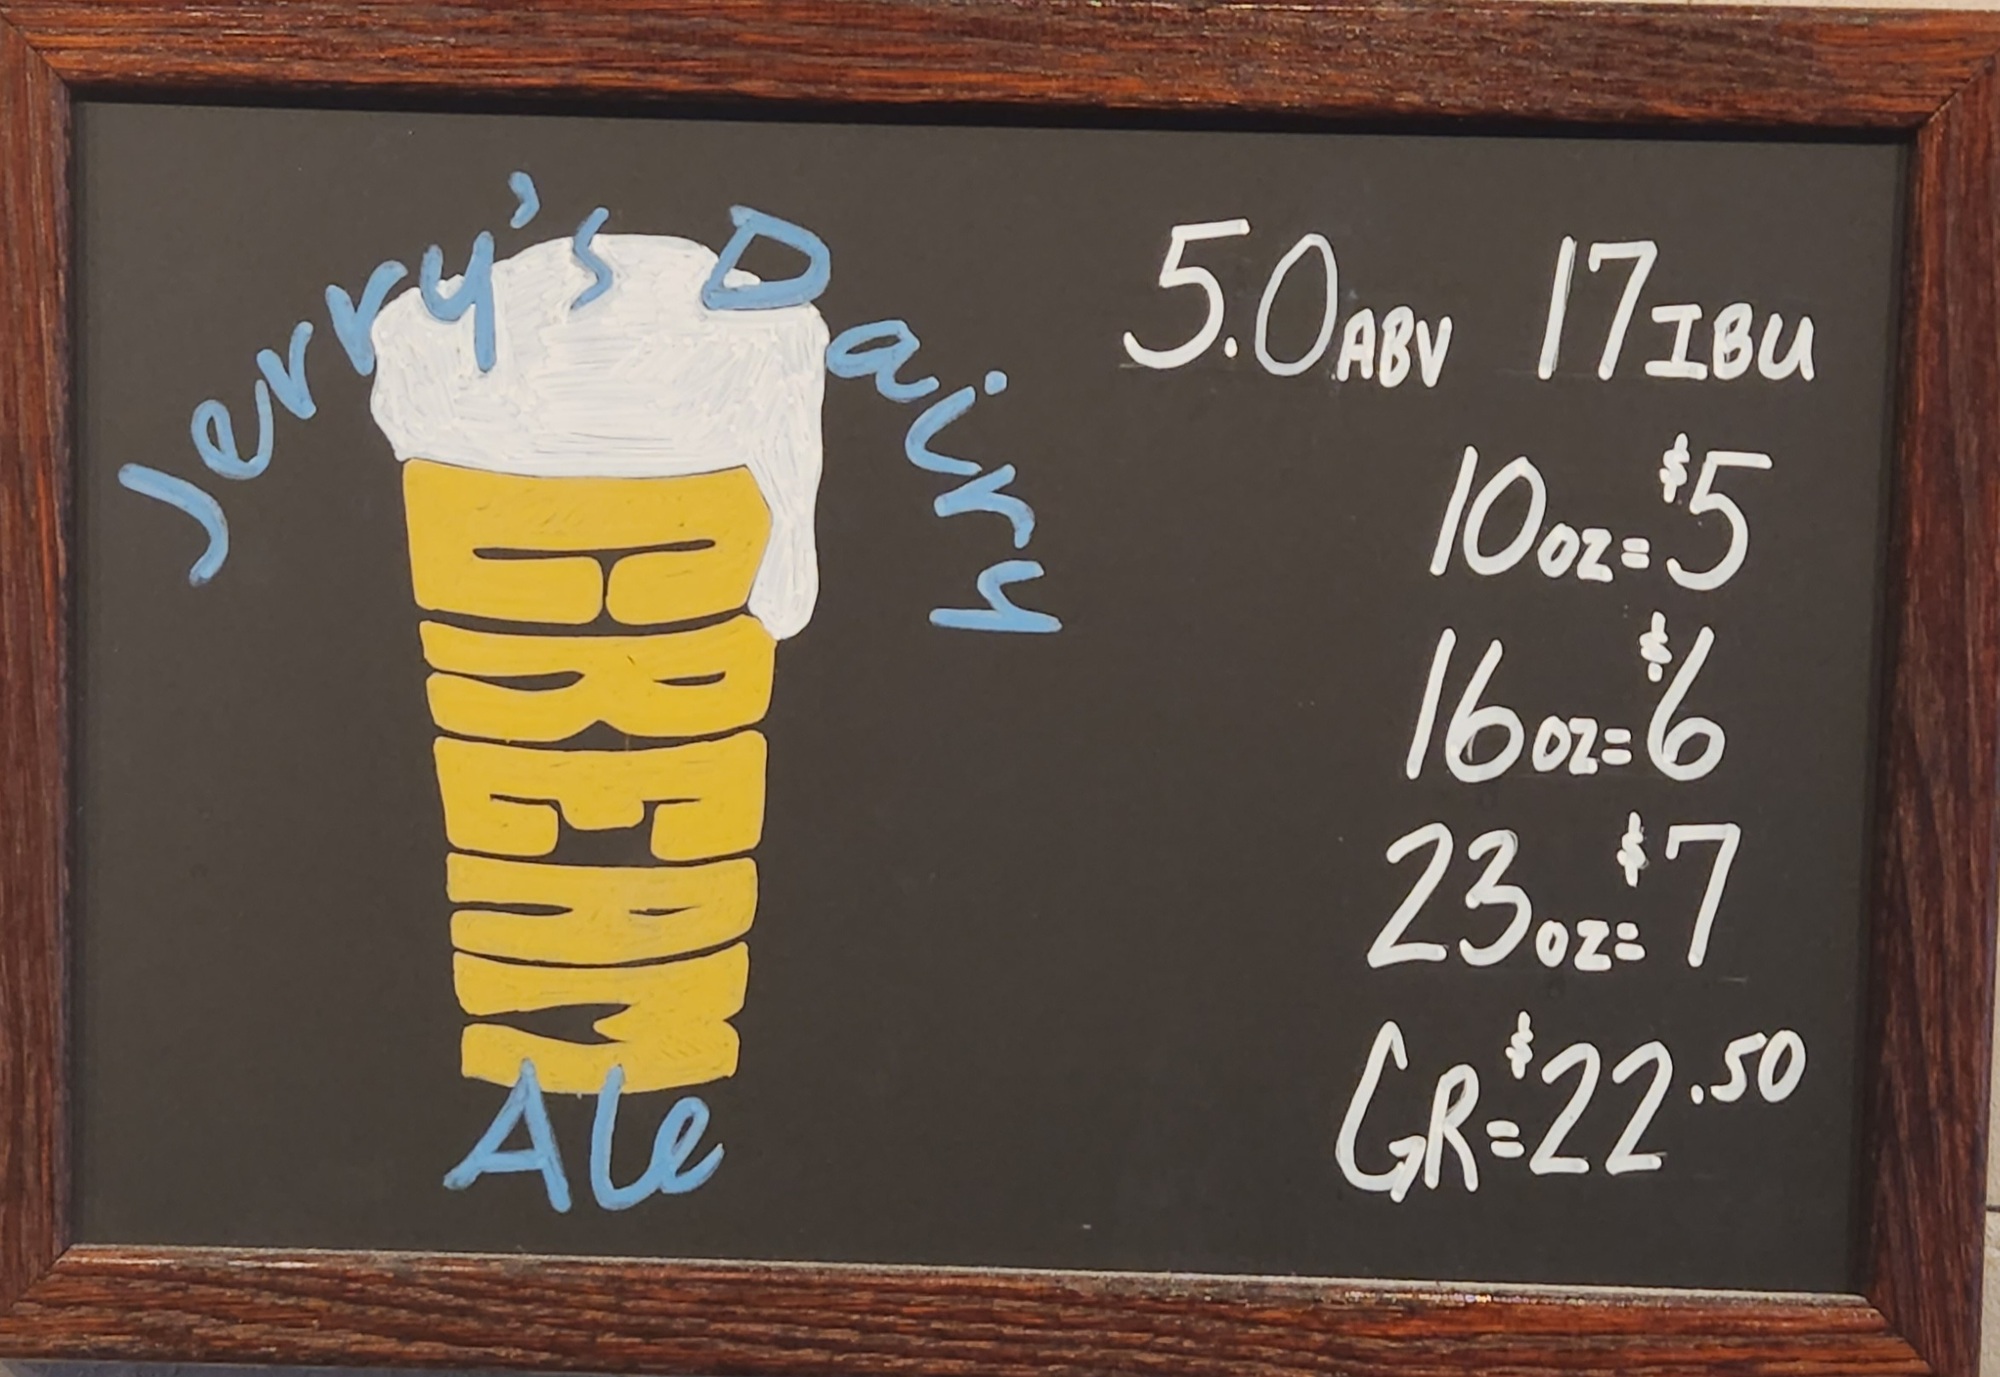 Jerry's Dairy
CREAM
Ale
5.0 ABV 17 IBU
10oz=$5
16oz=$6
23oz=$7
GR=$22.50